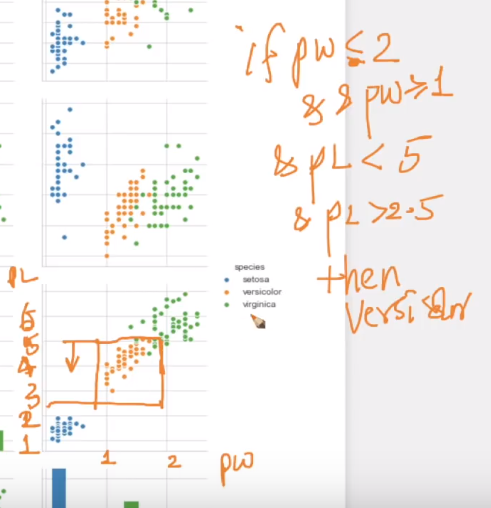 if pw ≤ 2
& & pw ≥ 1
& pL < 5
& pL > 2.5
then
PL
species
setosa
versicolor
virginica
6
5
4
3
2
1
1 2 pw